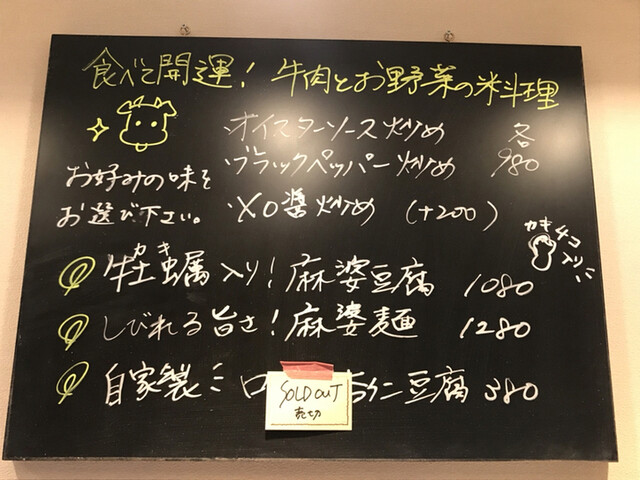 食べて開運！牛肉とお野菜の米料理
オイスターソース炒め 各
ブラックペッパー炒め 980
お好みの味を
お選び下さい。
XO醤炒め (+200)
カキ
牡蠣入り！麻婆豆腐 1080
カキ4コ
入り
しびれる旨さ！麻婆麺 1280
自家製ミロ
豆腐 380
SOLD OUT
売切